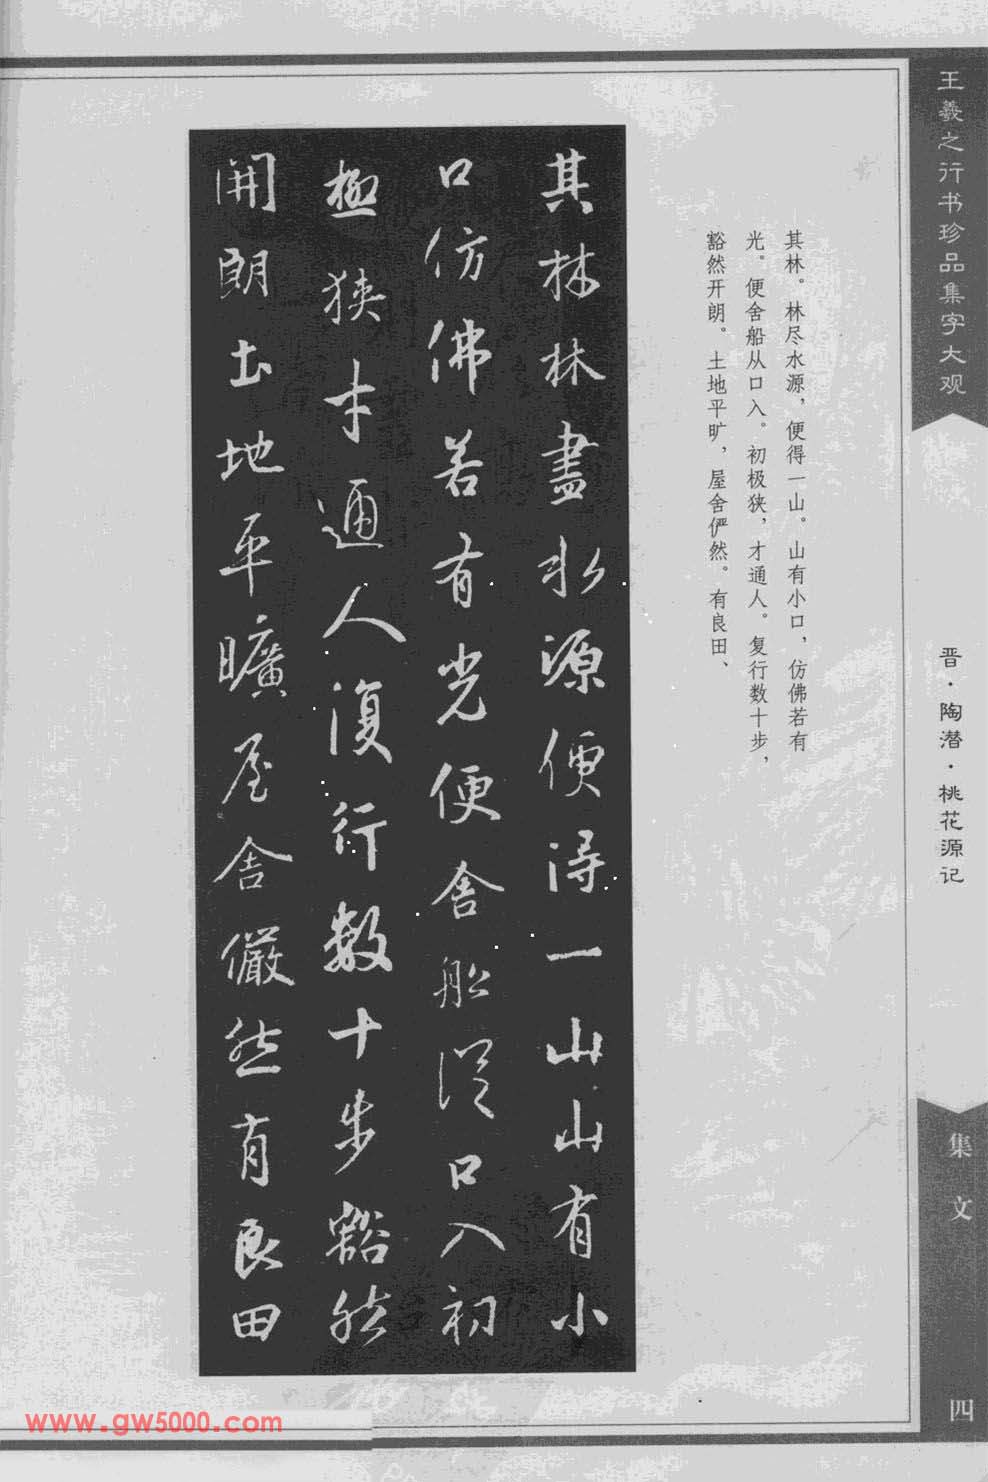 王羲之行书珍品集字大观
晋·陶潜·桃花源记
集文
四
其林。林尽水源，便得一山。山有小口，仿佛若有
光。便舍船从口入。初极狭，才通人。复行数十步，
豁然开朗。土地平旷，屋舍俨然。有良田、
其林林盡水源便得一山山有小
口仿佛若有光便舍船從口入初
極狹才通人復行數十步豁然
開朗土地平曠屋舍儼然有良田
www.gw5000.com